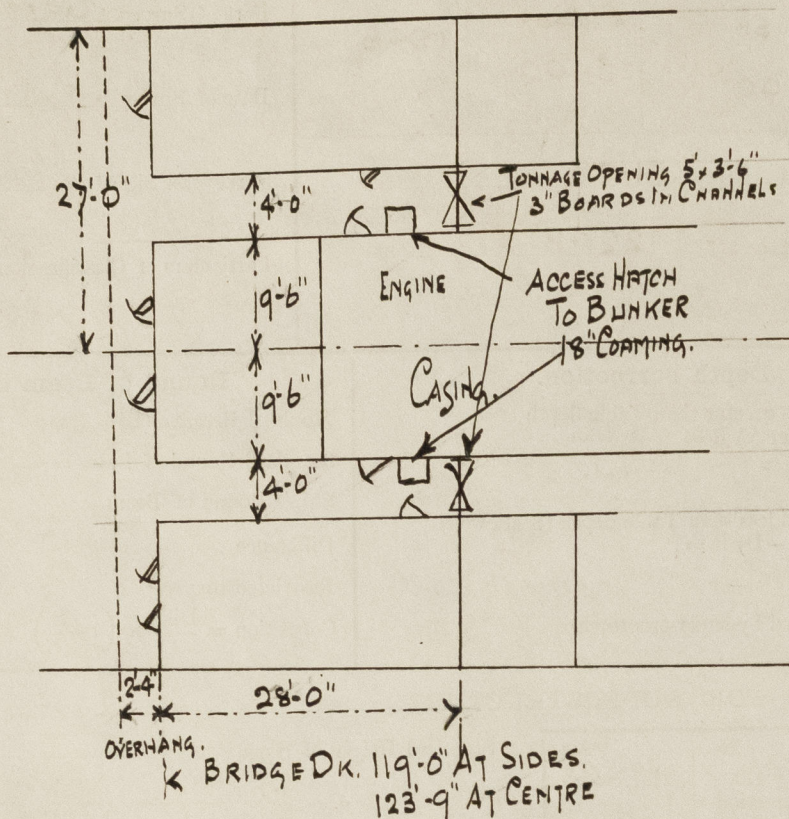 27'-0"
4'-0"
TONNAGE OPENING 5' x 3'-6"
3" BOARDS IN CHANNELS
9'-6"
ENGINE
ACCESS HATCH
TO BUNKER
18" COAMING.
9'-6"
CASING.
4'-0"
2'-4"
28'-0"
OVERHANG.
BRIDGE DK. 119'-0" AT SIDES.
123'-9" AT CENTRE